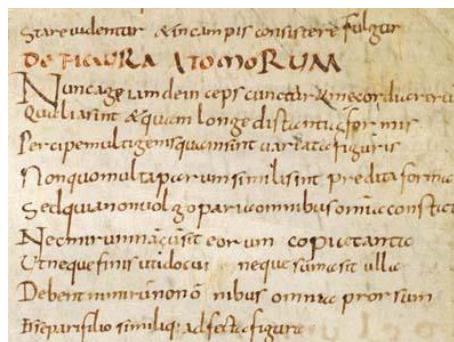 Stare videntur & in campis consistere fulgur
DE FIGURA ATOMORUM
Nunc age iam dein ceps
Qualia sint & quam longe distantia formis
Percipe multigenis quam sint variata figuris
Non quo multa parum simili sint predita forma
Sed quia non volgo paria omnibus omnia constant
Nec mirum nā cū sit eorum copia tanta
Ut neque finis uti docui neque sit ulla
Debent nimirū non ō nibus omnia prorsum
Esse pari filo similiq: adfecta figura